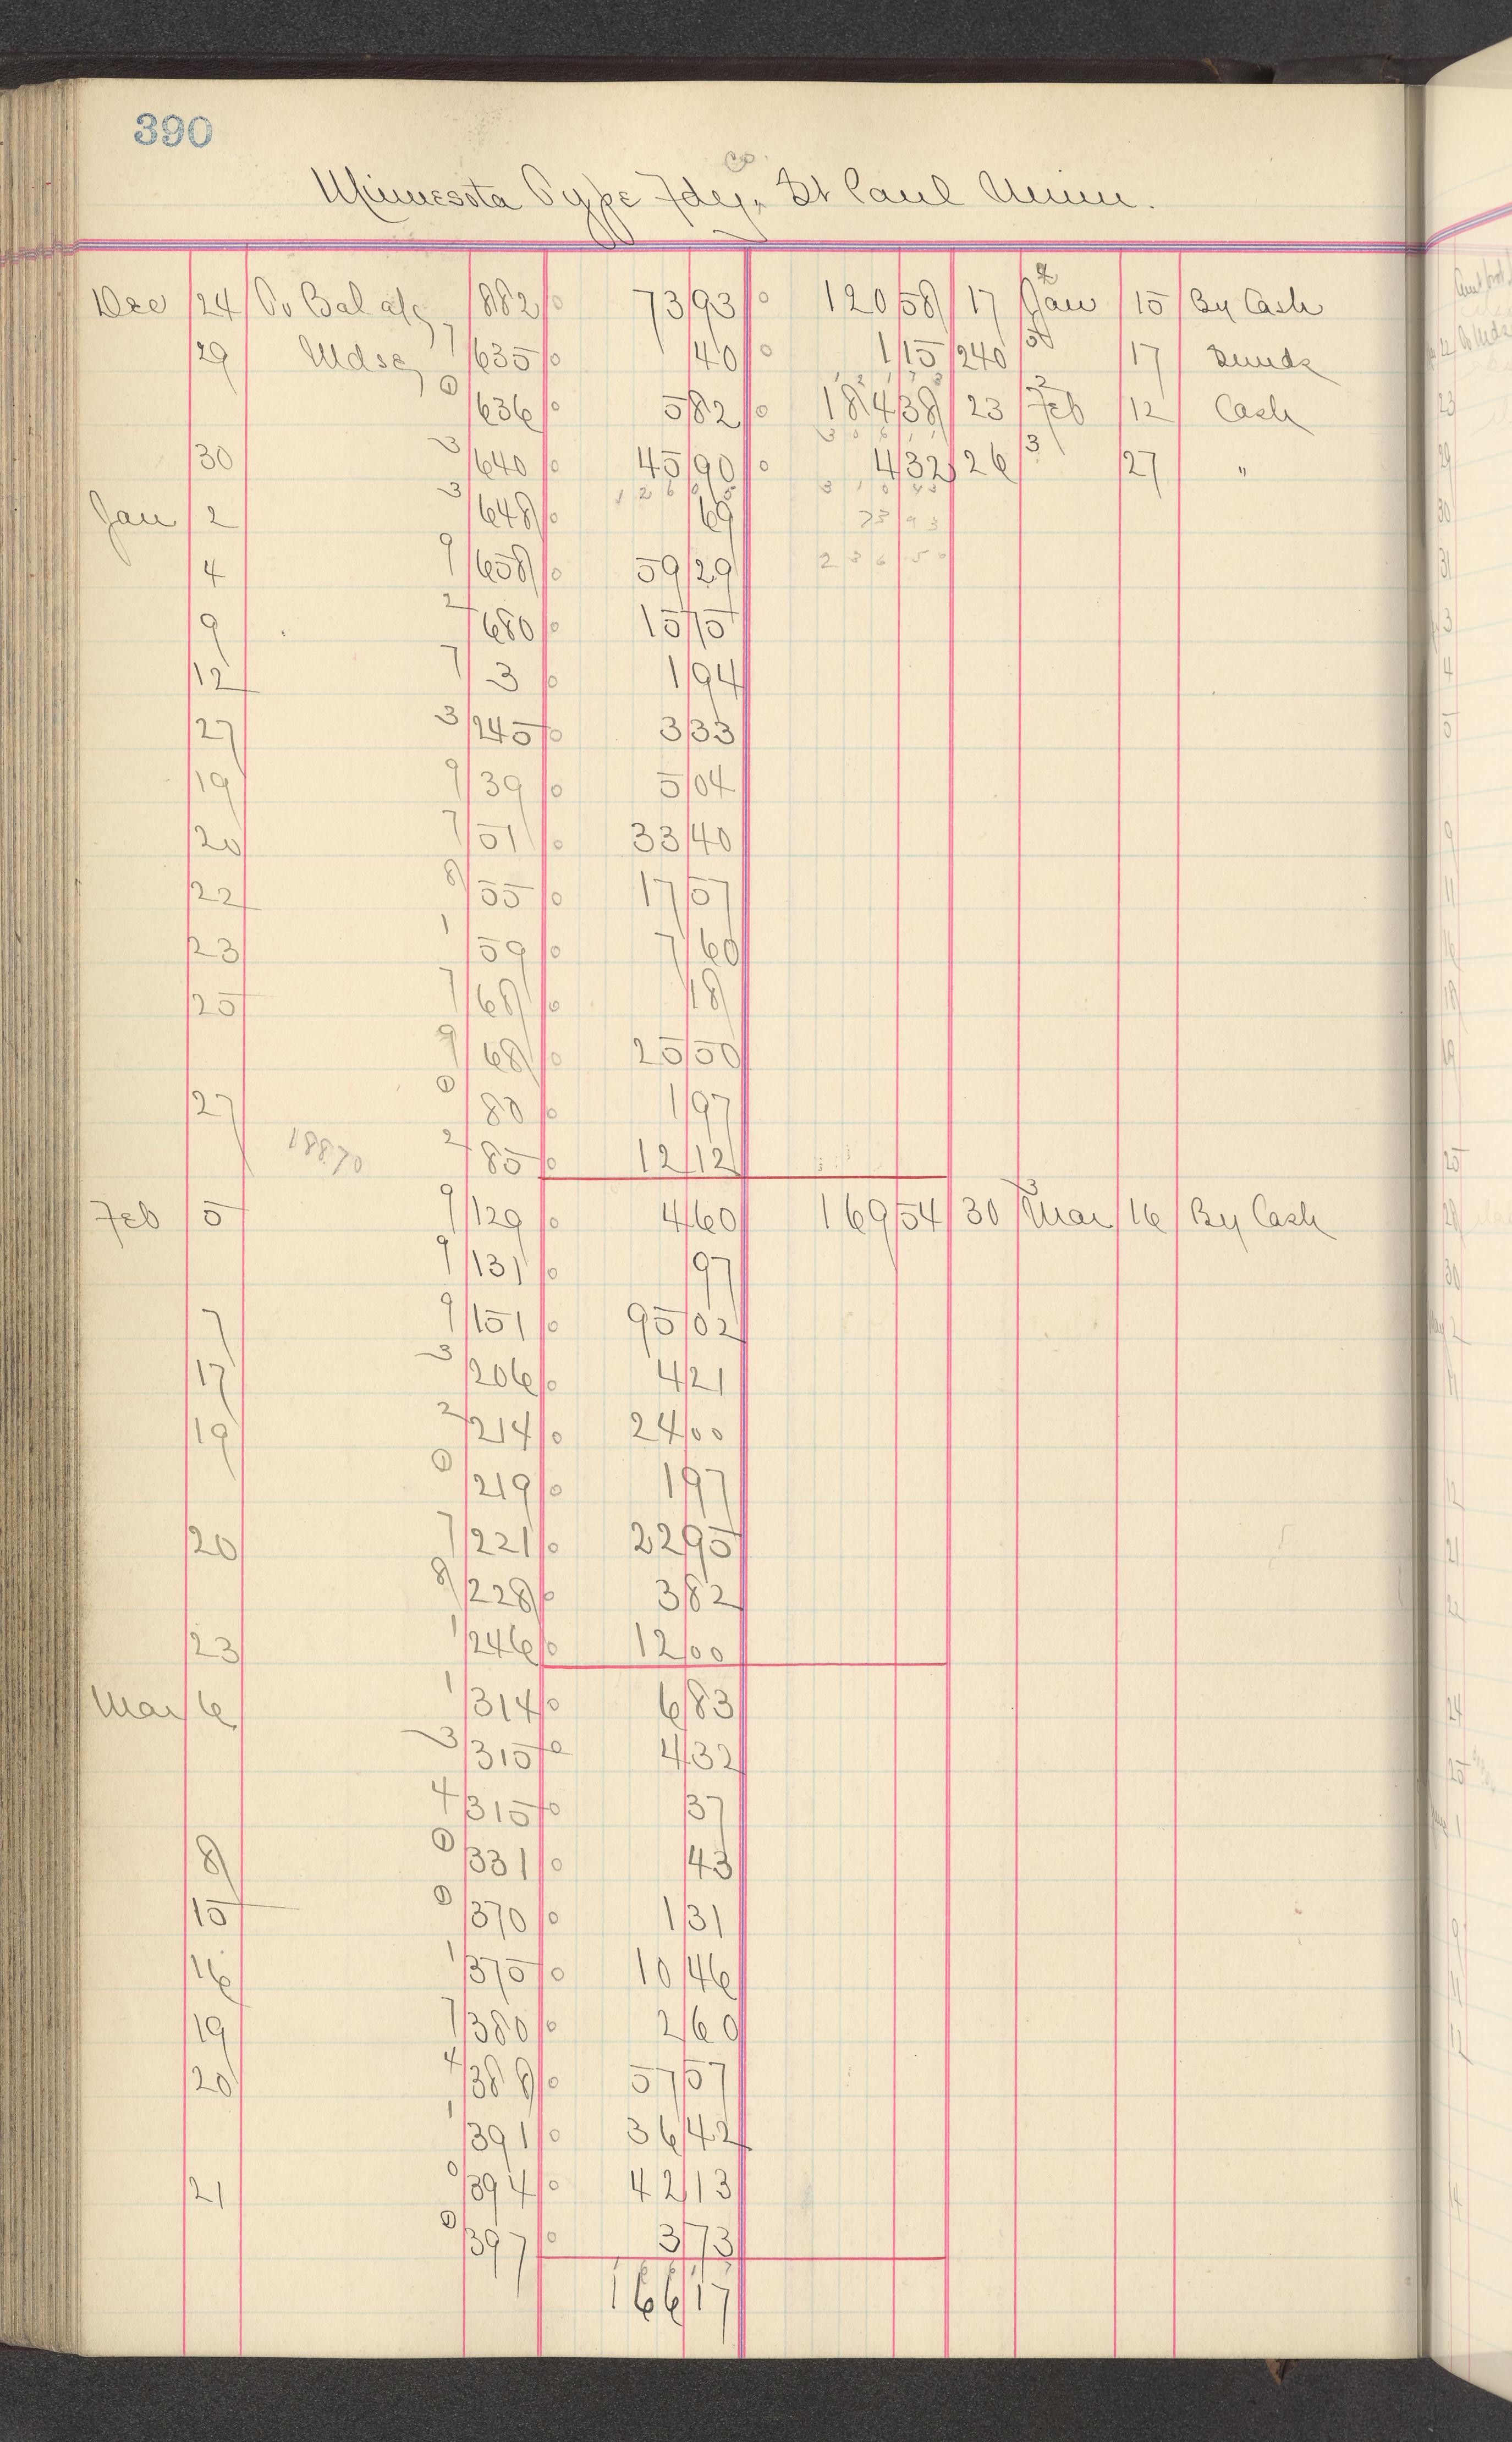 390
Co
Minnesota Type Fdey. St Paul Minn.
Dec 24 To Bal a/c 882 73 93 120 58 17 2 Jan 15 By Cash
29 Mdse 7 635 40 1 15 240 17 Sunds
0 636 5 82 184 38 23 2 Feb 12 Cash
30 3 640 45 90 4 32 26 3 27 "
126 05 310 43
Jan 2 3 648 69 73 93
4 9 658 59 29 236 50
9 2 680 15 75
12 7 3 1 94
27 3 245 3 33
19 9 39 5 04
20 7 51 33 40
22 8 55 17 57
23 1 59 7 60
25 7 68 18
9 68 25 50
27 0 80 1 97
188.70 2 85 12 12
Feb 5 9 129 4 60 169 54 30 3 Mar 16 By Cash
9 131 97
7 9 151 95 02
17 3 206 4 21
19 2 214 24 00
0 219 1 97
20 7 221 22 95
8 228 3 82
23 1 246 12 00
Mar 6 1 314 6 83
3 315 4 32
4 315 37
8 0 331 43
15 0 370 1 31
16 1 375 10 46
19 7 380 2 60
20 4 388 57 57
1 391 36 42
21 0 394 42 13
0 397 3 73
166 17